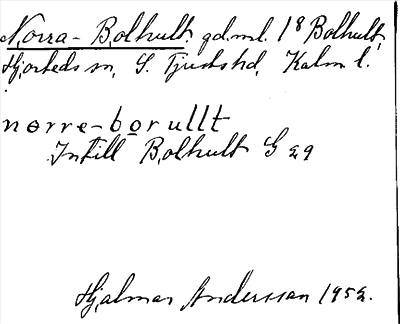 Norra-Bolhult gd.ml. 1/8 Bolhult,
Hjorteds sn, S. Tjusts hd, Kalm l.
nørre-børullt
Intill Bolhult G 29
Hjalmar Andersson 1952.